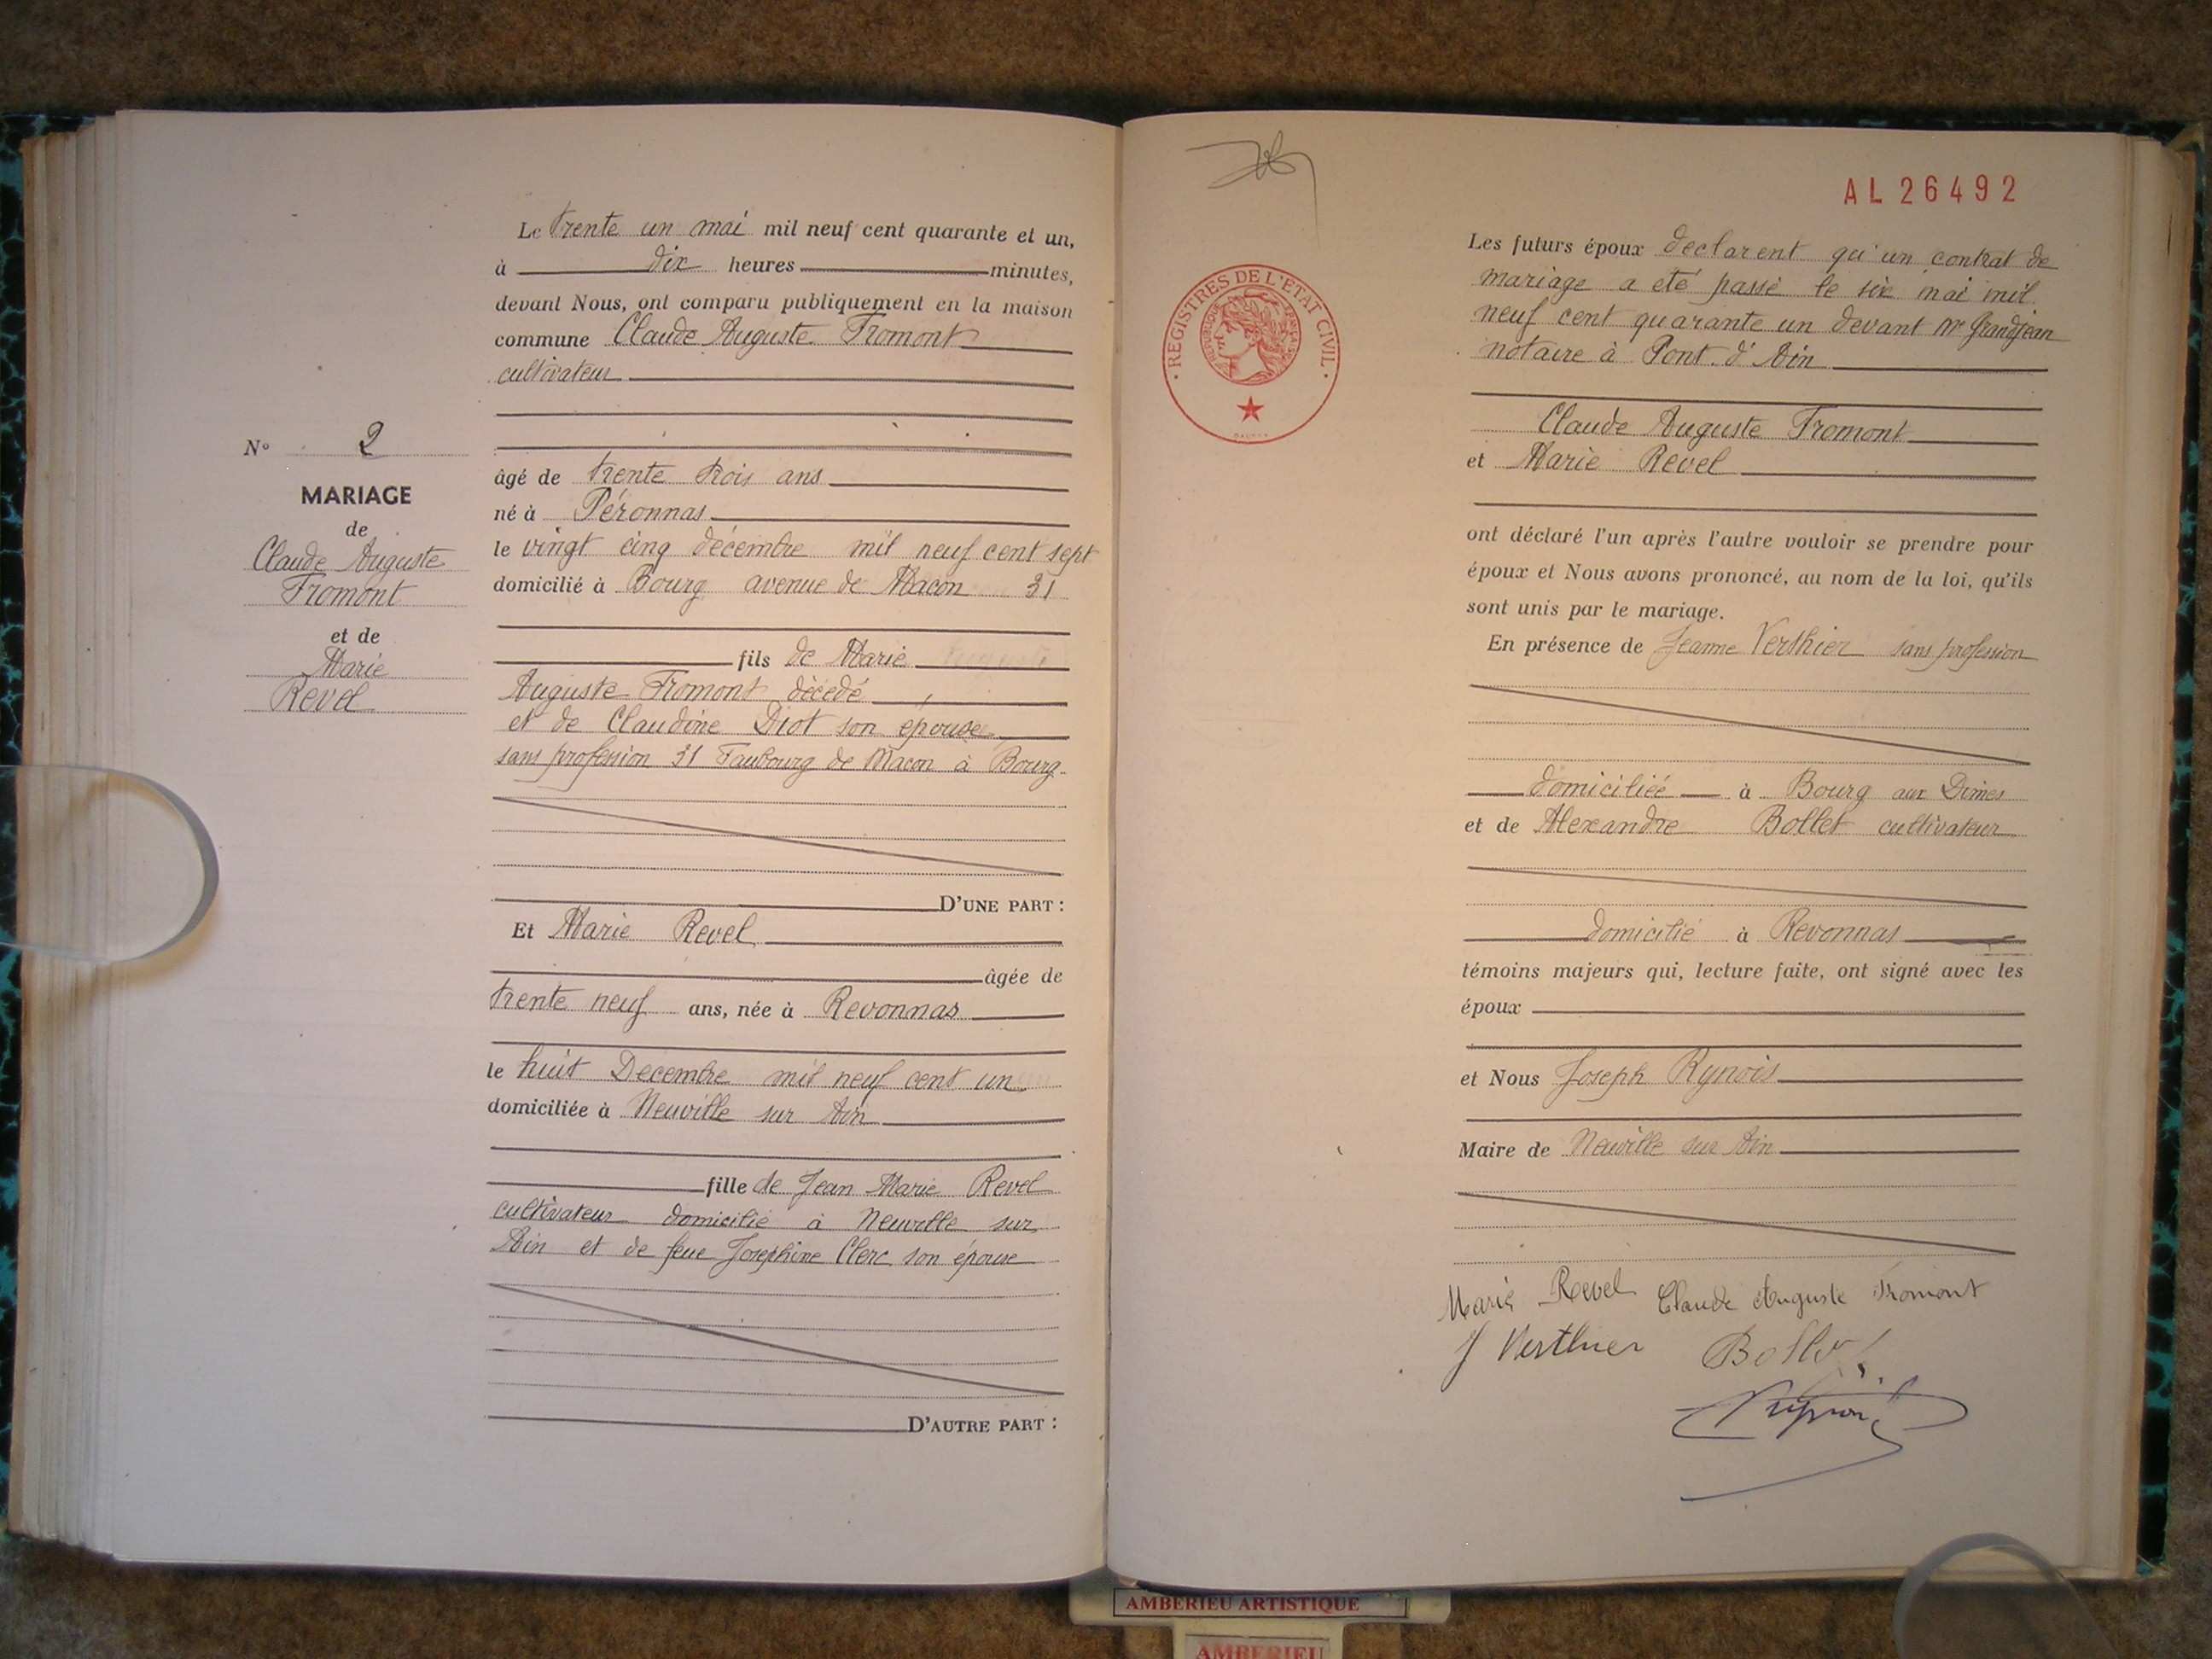 N° 2
MARIAGE
de
Claude Auguste
Fromont
et de
Marie
Revel
Le trente un mai mil neuf cent quarante et un,
à dix heures minutes,
devant Nous, ont comparu publiquement en la maison
commune Claude Auguste Fromont
cultivateur
âgé de trente trois ans
né à Péronnas
le vingt cinq décembre mil neuf cent sept
domicilié à Bourg avenue de Macon 31
fils de Marie
Auguste Fromont décédé
et de Claudine Diot son épouse
sans profession 31 Faubourg de Macon à Bourg
D'UNE PART :
Et Marie Revel
âgée de
trente neuf ans, née à Revonnas
le huit Decembre mil neuf cent un
domiciliée à Neuville sur Ain
fille de Jean Marie Revel
cultivateur domicilié à Neuville sur
Ain et de feue Josephine Clerc son épouse
D'AUTRE PART :
AL 26492
REGISTRES DE L'ETAT CIVIL
REPUBLIQUE FRANÇAISE
Les futurs époux declarent qu'un contrat de
mariage a eté passé le six mai mil
neuf cent quarante un devant Mr Grandjean
notaire à Pont d'Ain
Claude Auguste Fromont
et Marie Revel
ont déclaré l'un après l'autre vouloir se prendre pour
époux et Nous avons prononcé, au nom de la loi, qu'ils
sont unis par le mariage.
En présence de Jeanne Verthier sans profession
domiciliée à Bourg aux Dimes
et de Alexandre Bollet cultivateur
domicilié à Revonnas
témoins majeurs qui, lecture faite, ont signé avec les
époux
et Nous Joseph Rynois
Maire de Neuville sur Ain
Marie Revel Claude Auguste Fromont
J Verthier Bollet
AMBERIEU ARTISTIQUE
AMBERIEU